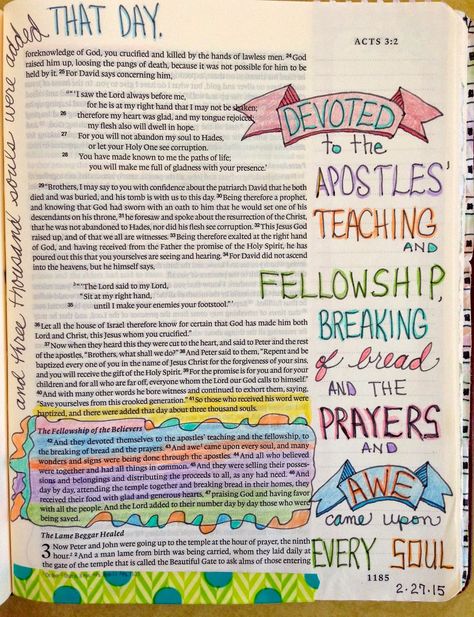 and three thousand souls were added
THAT DAY.
ACTS 3:2
foreknowledge of God, you crucified and killed by the hands of lawless men. 24 God
raised him up, loosing the pangs of death, because it was not possible for him to be
held by it. 25 For David says concerning him,
"'I saw the Lord always before me,
for he is at my right hand that I may not be shaken;
26 therefore my heart was glad, and my tongue rejoiced;
my flesh also will dwell in hope.
27 For you will not abandon my soul to Hades,
or let your Holy One see corruption.
28 You have made known to me the paths of life;
you will make me full of gladness with your presence.'
29 "Brothers, I may say to you with confidence about the patriarch David that he both
died and was buried, and his tomb is with us to this day. 30 Being therefore a prophet,
and knowing that God had sworn with an oath to him that he would set one of his
descendants on his throne, 31 he foresaw and spoke about the resurrection of the Christ,
that he was not abandoned to Hades, nor did his flesh see corruption. 32 This Jesus God
raised up, and of that we all are witnesses. 33 Being therefore exalted at the right hand
of God, and having received from the Father the promise of the Holy Spirit, he has
poured out this that you yourselves are seeing and hearing. 34 For David did not ascend
into the heavens, but he himself says,
"'The Lord said to my Lord,
"Sit at my right hand,
35 until I make your enemies your footstool."'
36 Let all the house of Israel therefore know for certain that God has made him both
Lord and Christ, this Jesus whom you crucified."
37 Now when they heard this they were cut to the heart, and said to Peter and the rest
of the apostles, "Brothers, what shall we do?" 38 And Peter said to them, "Repent and be
baptized every one of you in the name of Jesus Christ for the forgiveness of your sins,
and you will receive the gift of the Holy Spirit. 39 For the promise is for you and for your
children and for all who are far off, everyone whom the Lord our God calls to himself."
40 And with many other words he bore witness and continued to exhort them, saying,
"Save yourselves from this crooked generation." 41 So those who received his word were
baptized, and there were added that day about three thousand souls.
The Fellowship of the Believers
42 And they devoted themselves to the apostles' teaching and the fellowship, to
the breaking of bread and the prayers. 43 And awe came upon every soul, and many
wonders and signs were being done through the apostles. 44 And all who believed
were together and had all things in common. 45 And they were selling their posses-
sions and belongings and distributing the proceeds to all, as any had need. 46 And
day by day, attending the temple together and breaking bread in their homes, they
received their food with glad and generous hearts, 47 praising God and having favor
with all the people. And the Lord added to their number day by day those who were
being saved.
The Lame Beggar Healed
3 Now Peter and John were going up to the temple at the hour of prayer, the ninth
hour. 2 And a man lame from birth was being carried, whom they laid daily at
the gate of the temple that is called the Beautiful Gate to ask alms of those entering
DEVOTED
to the
APOSTLES'
TEACHING
AND
FELLOWSHIP,
BREAKING
of bread
AND THE
PRAYERS
AND
AWE
came upon
EVERY SOUL
1185
2.27.15